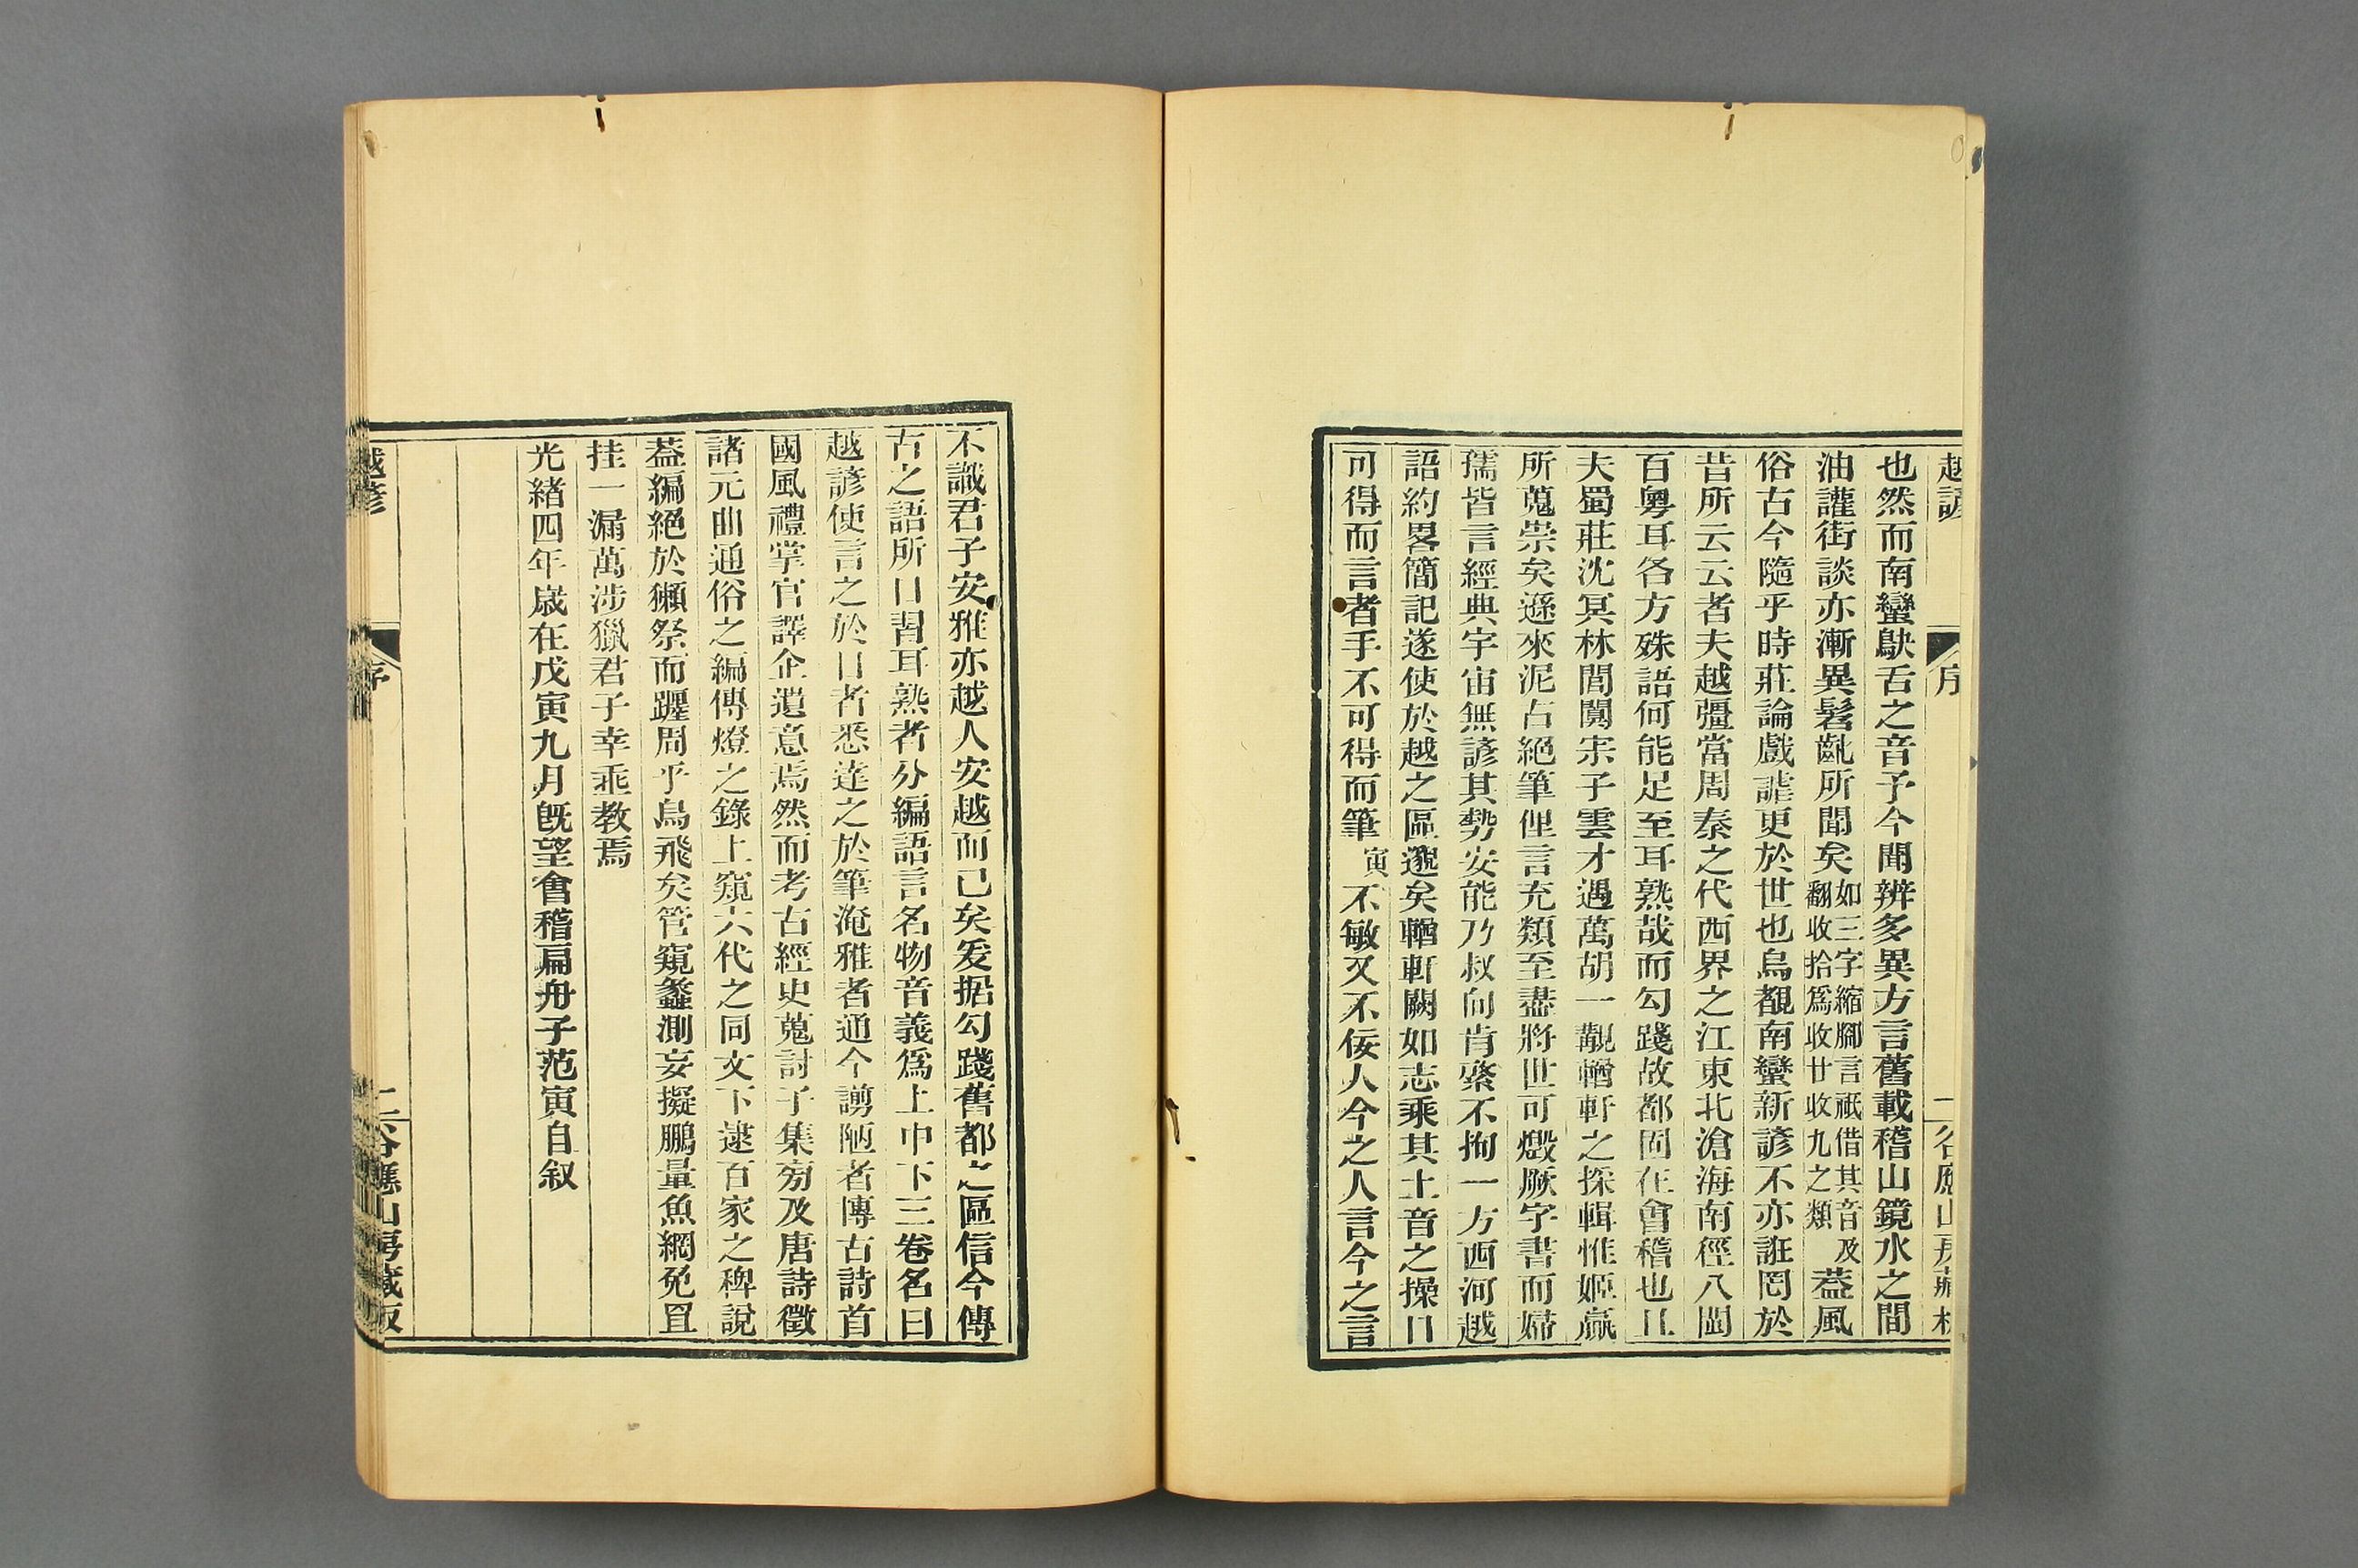 越諺 序 二 谷應山房藏板
也然而南蠻鴃舌之音予今聞辨多異方言舊載稽山鏡水之間
油讙街談亦漸異髫齔所聞矣如三字縮腳言祇借其音及翻收拾爲收廿收九之類蓋風
俗古今隨乎時莊論戲謔更於世也烏覩南蠻新諺不亦誑罔於
昔所云云者夫越疆當周秦之代西界之江東北滄海南徑八閩
百粵耳各方殊語何能足至耳熟哉而勾踐故都固在會稽也且
夫蜀莊沈冥林閭闃宋子雲才遇萬胡一觀輶軒之採輯惟姬嬴
所蒐祟矣遜來泥古絕筆俚言充類至盡將世可燬厥字書而婦
孺皆言經典宇宙無諺其勢安能乃叔向肯綮不拘一方西河越
語約畧簡記遂使於越之區邈矣輶軒闕如志乘其土音之操口
可得而言者手不可得而筆寅不敏又不佞人今之人言今之言
不識君子安雅亦越人安越而已矣爰据勾踐舊都之區信今傳
古之語所口習耳熟者分編語言名物音義爲上中下三卷名曰
越諺使言之於口者悉達之於筆淹雅者通今謭陋者傳古詩首
國風禮掌官譯企遺意焉然而考古經史蒐討子集旁及唐詩徵
諸元曲通俗之編傳燈之錄上窺六代之同文下逮百家之稗說
蓋編絕於獺祭而躔周乎烏飛矣管窺蠡測妄擬鵬量魚網兔罝
挂一漏萬涉獵君子幸垂教焉
光緒四年歲在戊寅九月旣望會稽扁舟子范寅自叙
越諺 序 二 谷應山房藏板